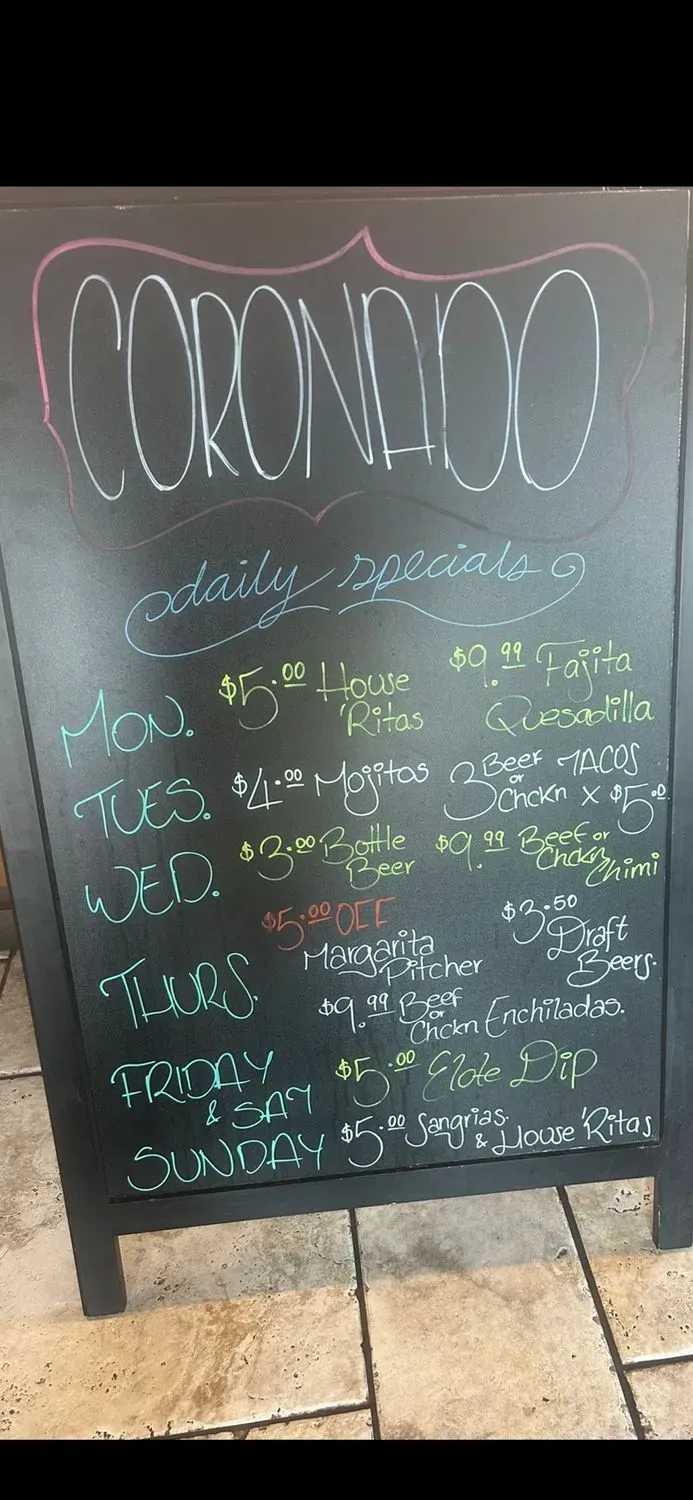 CORONADO
daily specials
MON. $5.00 House 'Ritas $9.99 Fajita Quesadilla
TUES. $4.00 Mojitos 3 Beef or Chckn TACOS x $5.0
WED. $3.00 Bottle Beer $9.99 Beef or Chckn Chimi
THURS. $5.00 OFF Margarita Pitcher $3.50 Draft Beers.
$9.99 Beef or Chckn Enchiladas.
FRIDAY & SAT $5.00 Elote Dip
SUNDAY $5.00 Sangrias. & House 'Ritas